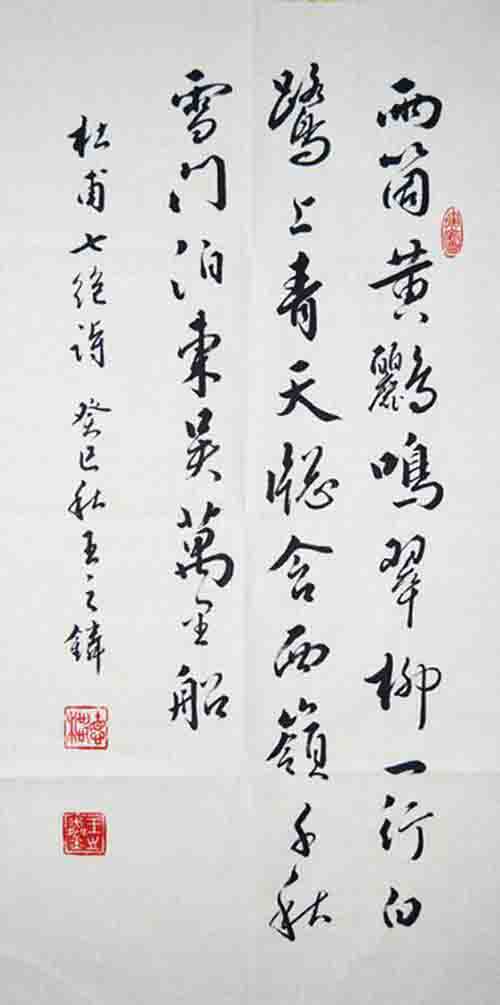 兩箇黄鸝鳴翠柳一行白
鷺上青天牕含西嶺千秋
雪門泊東吴萬里船
杜甫七绝詩 癸巳秋王之